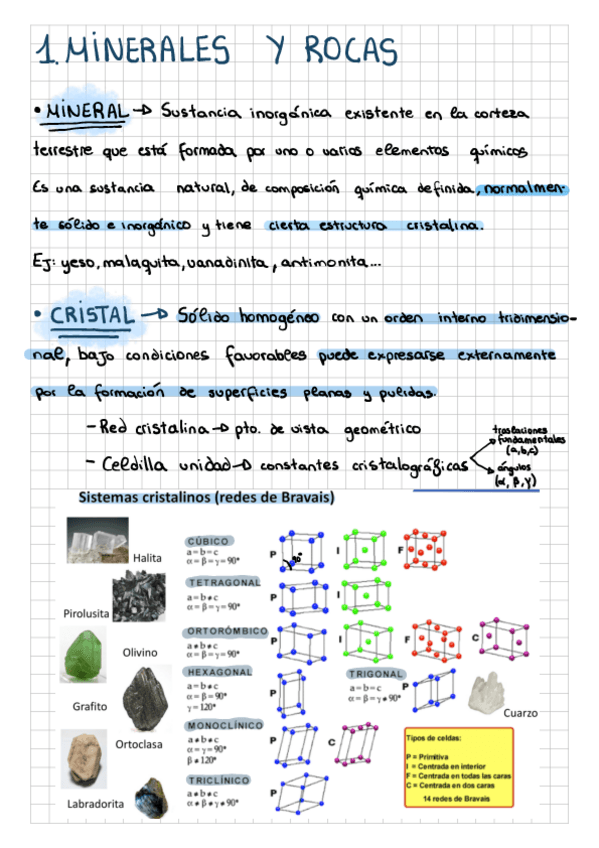 1. MINERALES Y ROCAS
• MINERAL → Sustancia inorgánica existente en la corteza
terrestre que está formada por uno o varios elementos químicos
Es una sustancia natural, de composición química definida, normalmen-
te sólido e inorgánico y tiene cierta estructura cristalina.
Ej: yeso, malaquita, vanadinita, antimonita...
• CRISTAL → Sólido homogéneo con un orden interno tridimensio-
nal, bajo condiciones favorables puede expresarse externamente
por la formación de superficies planas y pulidas.
- Red cristalina → pto. de vista geométrico
- Celdilla unidad → constantes cristalográficas
traslaciones
fundamentales
(a,b,c)
ángulos
(α, β, γ)
Sistemas cristalinos (redes de Bravais)
Halita
CÚBICO
a = b = c
α = β = γ = 90°
P
90°
I
F
Pirolusita
TETRAGONAL
a = b ≠ c
α = β = γ = 90°
P
I
Olivino
ORTORÓMBICO
a ≠ b ≠ c
α = β = γ = 90°
P
I
F
C
Grafito
HEXAGONAL
a = b ≠ c
α = β = 90°
γ = 120°
P
TRIGONAL
a = b = c
α = β = γ ≠ 90°
P
Cuarzo
Ortoclasa
MONOCLÍNICO
a ≠ b ≠ c
α = γ = 90°
β ≠ 120°
P
C
Labradorita
TRICLÍNICO
a ≠ b ≠ c
α ≠ β ≠ γ ≠ 90°
P
Tipos de celdas:
P = Primitiva
I = Centrada en interior
F = Centrada en todas las caras
C = Centrada en dos caras
14 redes de Bravais